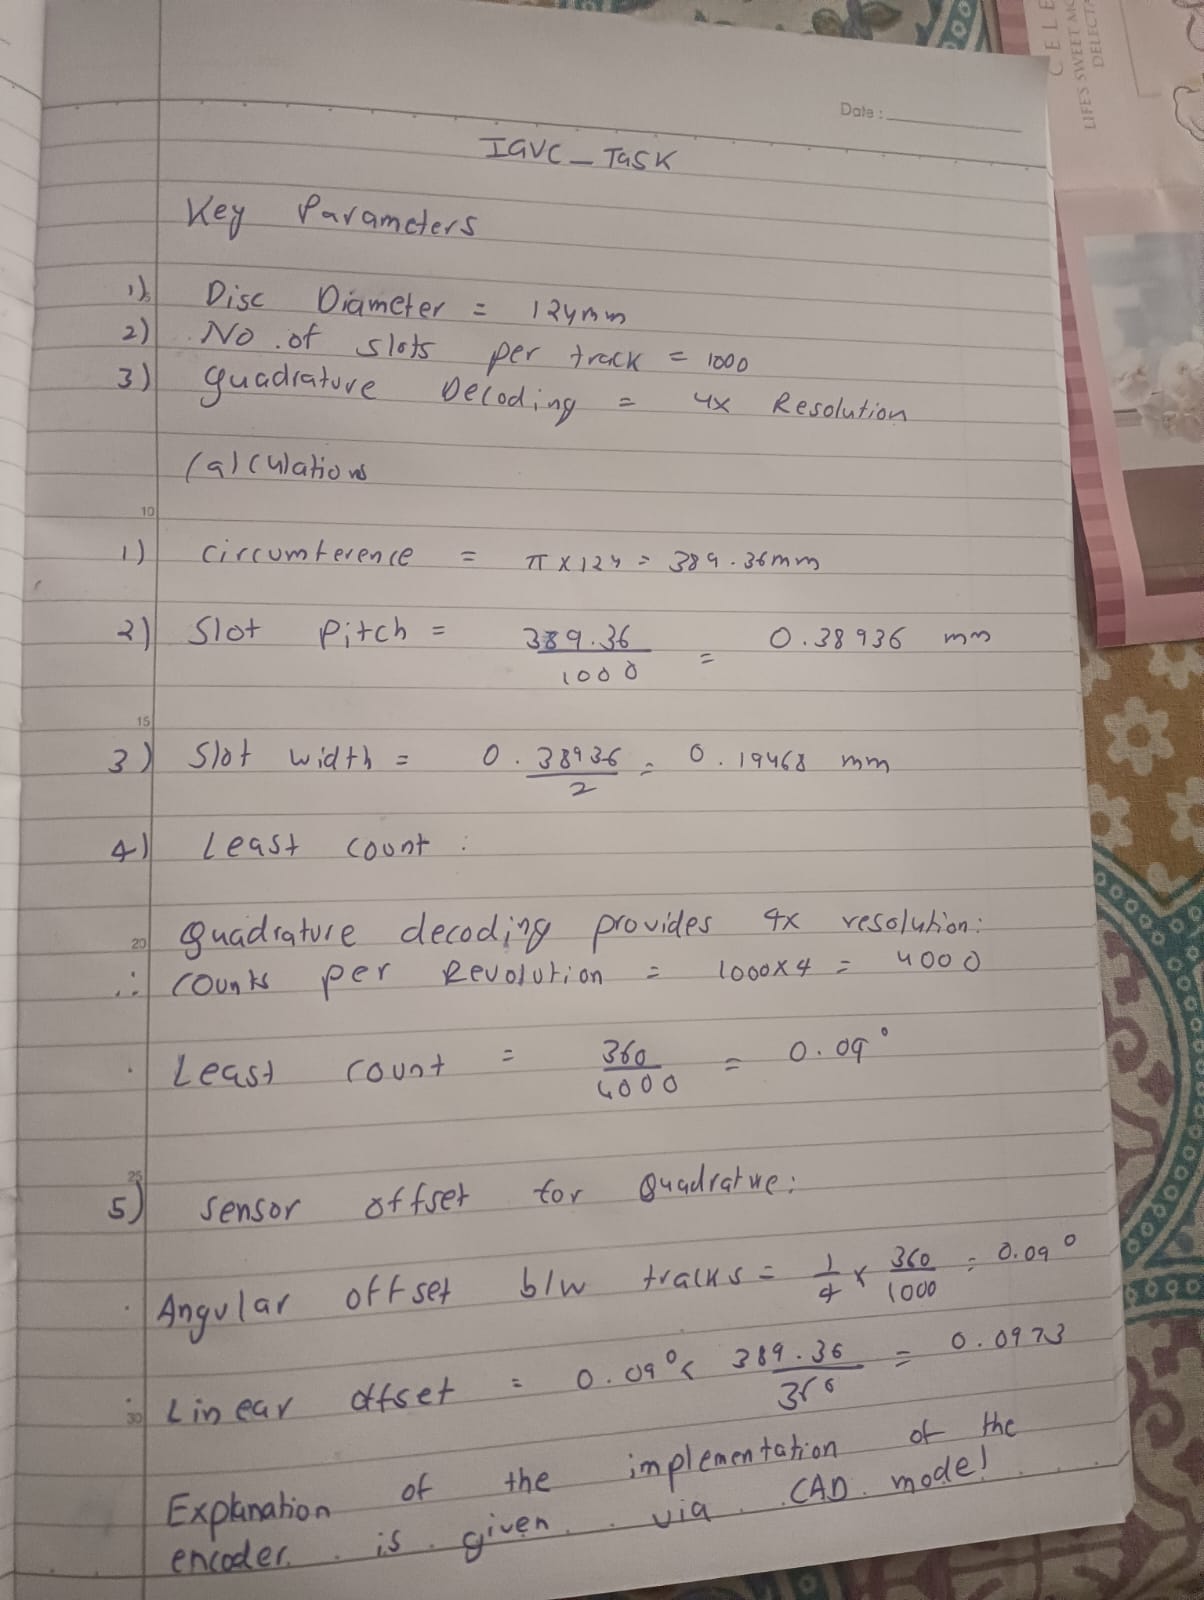 CELE
LIFE'S SWEET MO
DELECTA
Date :
IGVC_TASK
Key Parameters
1) Disc Diameter = 124mm
2) No. of slots per track = 1000
3) Quadrature Decoding = 4x Resolution
Calculations
10
1) Circumference = π x 124 = 389.36mm
2) Slot Pitch = 389.36/1000 = 0.38936 mm
15
3) Slot width = 0.38936/2 = 0.19468 mm
4) Least count :
20 Quadrature decoding provides 4x resolution:
∴ Counts per Revolution = 1000x4 = 4000
. Least count = 360/4000 = 0.09°
25
5) Sensor offset for Quadrature:
. Angular offset b/w tracks = 1/4 x 360/1000 = 0.09°
30 Linear offset = 0.09° x 389.36/360 = 0.0973
Explanation of the implementation of the
encoder is given via CAD model